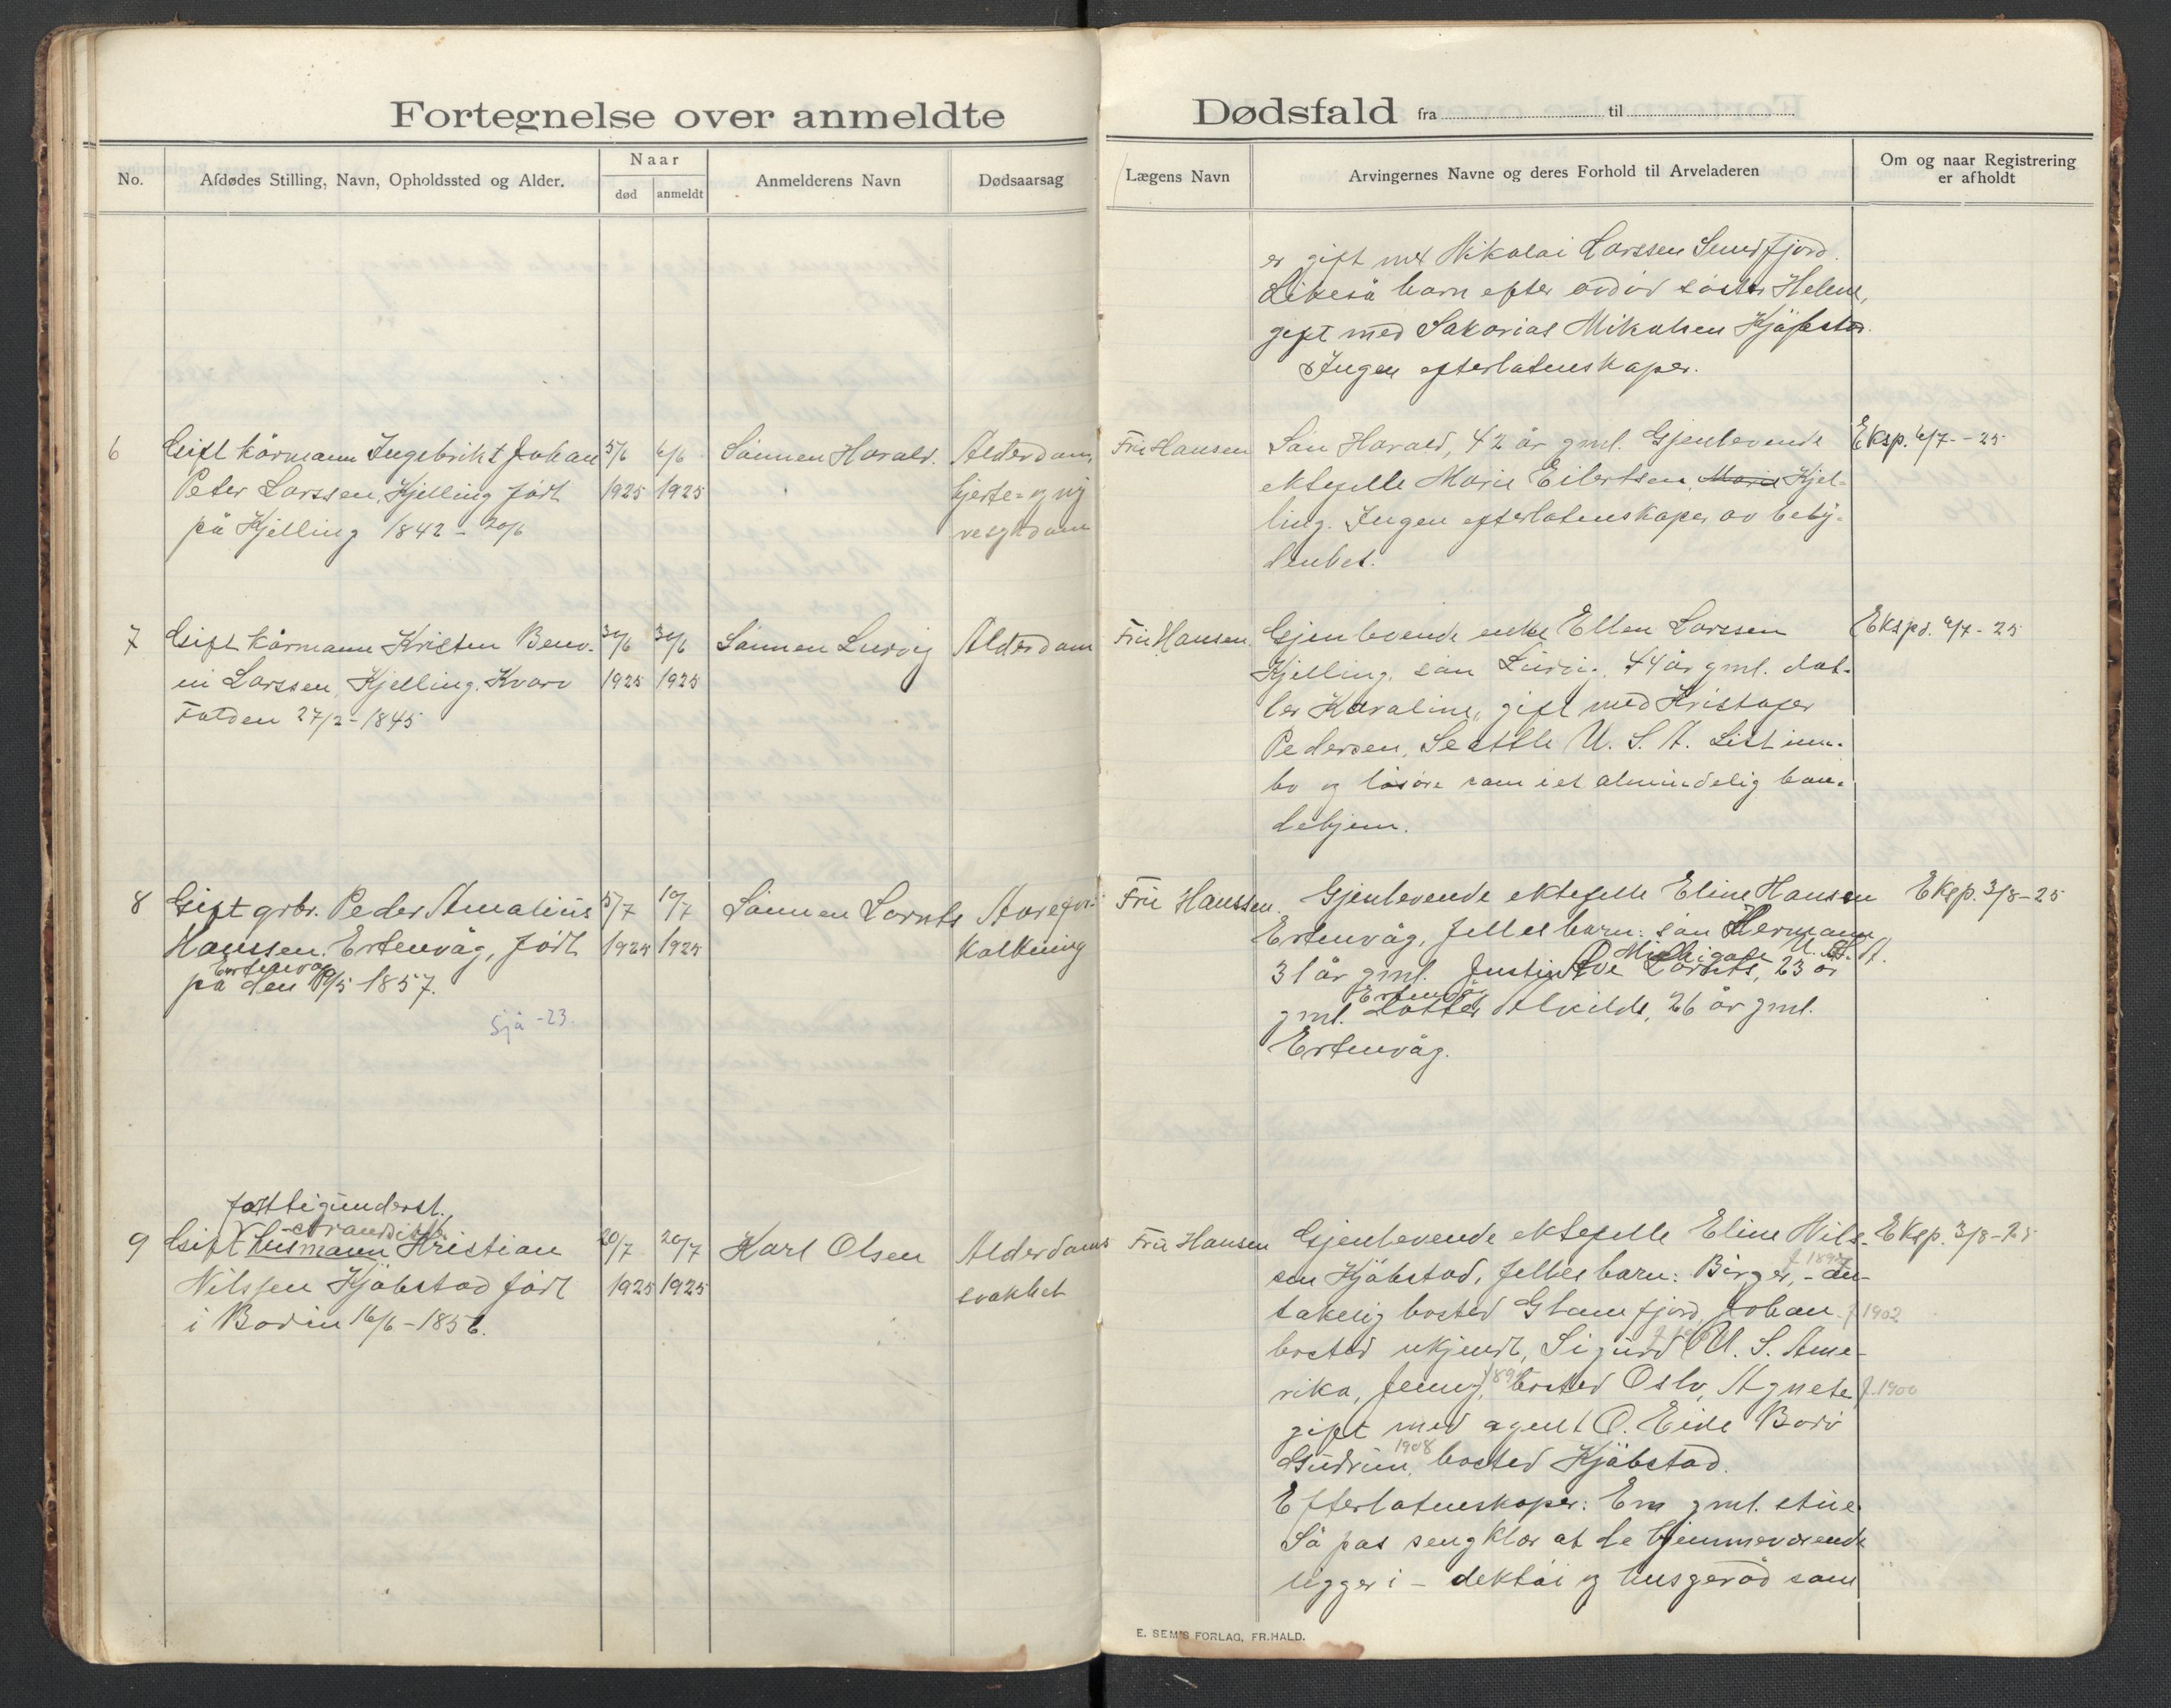 Fortegnelse over anmeldte Dødsfald fra til
No.
Afdødes Stilling, Navn, Opholdssted og Alder.
Naar
død
anmeldt
Anmelderens Navn
Dødsaarsag
Lægens Navn
Arvingernes Navne og deres Forhold til Arveladeren
Om og naar Registrering
er afholdt
er gift med Nikolai Larssen Sundfjord.
Likeså barn efter avdød søster Helene,
gift med Sakarias Mikalsen Kjøbstad.
Ingen efterlatenskaper.
6
Gift kårmann Ingebrikt Johan
Peter Larssen, Kjelling født
på Kjelling 1842 - 20/6
5/6
1925
6/6
1925
Sønnen Harald.
Alderdom,
hjerte- og ny
resykdom
Fru Hansen
Søn Harald, 42 år gml. Gjenlevende
ektefelle Marie Eilertsen, Marie Kjel-
ling. Ingen efterlatenskaper av bety-
denhet.
Eksp. 6/7 - 25
7
Gift kårmann Kristen Beno-
ni Larssen, Kjelling. Kvarv
Folden 27/2 - 1845
30/6
1925
30/6
1925
Sønnen Ludvig
Alderdom
Fru Hansen.
Gjenlevende enke Ellen Larssen
Kjelling. søn Ludvig, 44 år gml. dat-
ter Karaline, gift med Kristofer
Pedersen, Seattle U. S. A. Litt inn-
bo og løsøre som i et almindelig bon-
dehjem.
Ekspd. 6/7 - 25
8
Gift grbr. Peder Amalius
Hanssen. Ertenvåg, født
Ertenvåg
på den 19/5 1857.
Sjå -23.
5/7
1925
10/7
1925
Sønnen Lornts
Aarefor-
kalkning
Fru Hanssen.
Gjenlevende ektefelle Eline Hansen
Ertenvåg, Felles barn: søn Hermann
Michigan U. S. A.
31 år gml. Justin Lornts, 23 år
Ertenvåg
gml. Datter Alvilde, 26 år gml.
Ertenvåg.
Eksp. 3/8 - 25
9
fattigunderst.
strandsitt.
Gift husmann Kristian
Nilssen Kjøbstad født
i Bodin 16/6 - 1856.
20/7
1925
20/7
1925
Karl Olsen
Alderdoms
svakhet
Fru Hansen
Gjenlevende ektefelle Eline Nils-
sen Kjøbstad, Felles barn: Birger, - an-
takelig bosted Glomfjord, Johan f 1902
bosted ukjendt, Sigurd U. S. Ame-
rika, Jenny, bosted Oslo, Agnete f. 1900
gift med agent O. Eide Bodø
1908
Gudrun, bosted Kjøbstad.
Efterlatenskaper: En gml. stue.
Så pas sengklær at de hjemmeværende
ligger i - dektøi og husgeråd som
Eksp. 3/8 - 25
E. SEM'S FORLAG, FR.HALD.